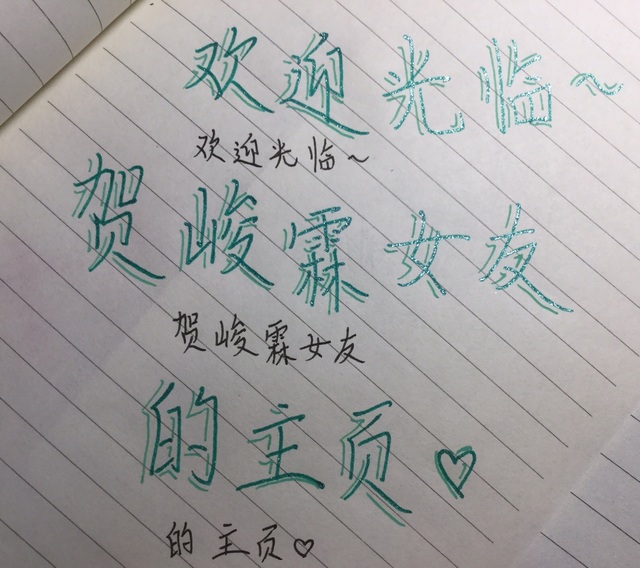 欢迎光临~
欢迎光临~
贺峻霖女友
贺峻霖女友
的主页♡
的主页♡